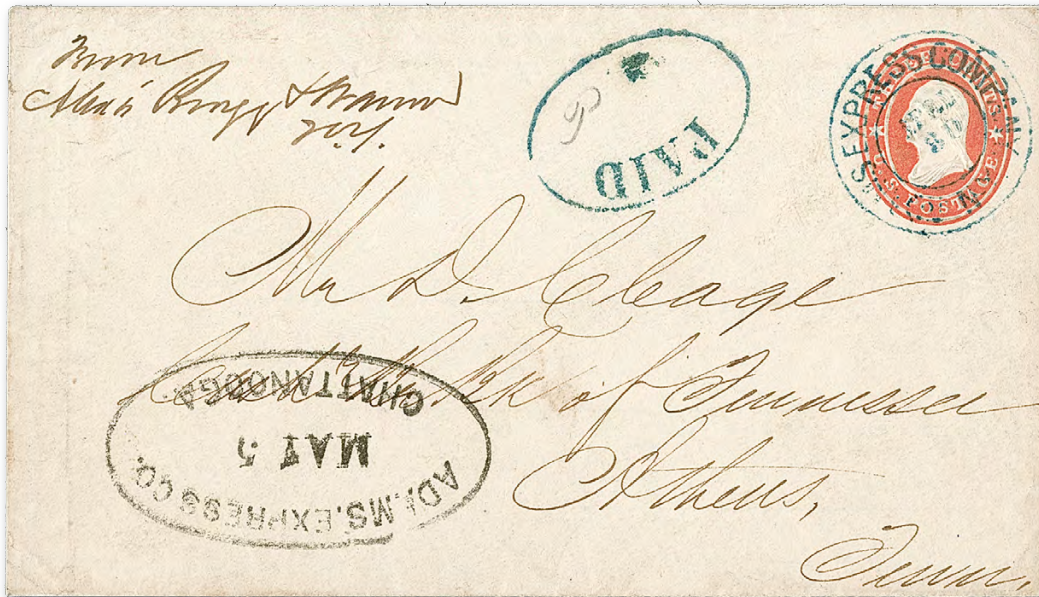 From
PAID
EXPRESS COMPANY
U.S. POSTAGE
Mr D. Cleage
Bk of Tennessee
Athens,
Tenn,
ADAMS.EXPRESS CO.
MAY 5
CHATTANOOGA